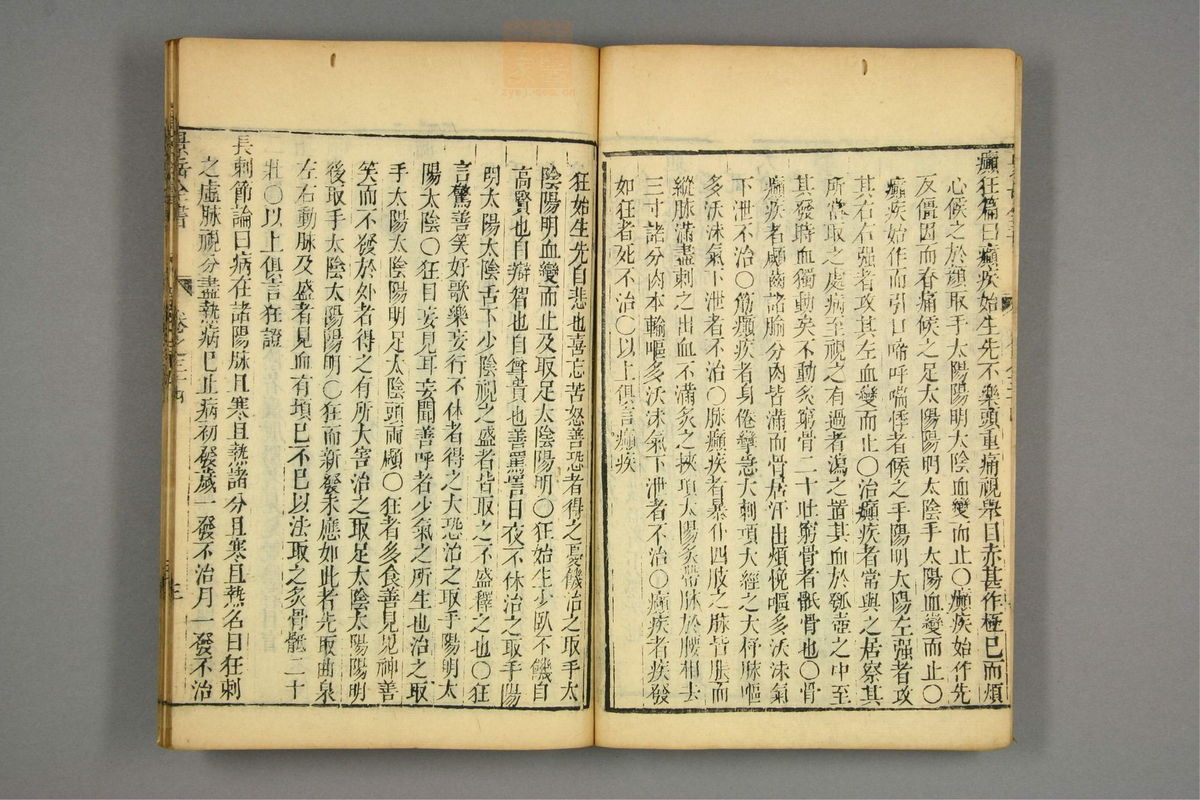 癲狂篇曰癲疾始生先不樂頭重痛視舉目赤甚作極已而煩
心候之於顔取手太陽陽明太陰血變而止〇癲疾始作先
反僵因而脊痛候之足太陽陽明太陰手太陽血變而止〇
癲疾始作而引口啼呼喘悸者候之手陽明太陽左强者攻
其右右强者攻其左血變而止〇治癲疾者當與之居察其
所當取之處病至視之有過者瀉之置其血於瓠壺之中至
其發時血獨動矣不動炙窮骨二十壯窮骨者骶骨也〇骨
癲疾者顑齒諸腧分肉皆滿而骨居汗出煩悗嘔多沃沫氣
下泄不治〇筋癲疾者身倦攣急大刺項大經之大杼脉嘔
多沃沫氣下泄者不治〇脉癲疾者暴仆四肢之脉皆脹而
縱脉滿盡刺之出血不滿炙之挾項太陽炙帶脉於腰相去
三寸諸分肉本輸嘔多沃沫氣下泄者不治〇癲疾者疾發
如狂者死不治〇以上俱言癲疾
狂始生先自悲也喜忘苦怒善恐者得之憂饑治之取手太
陰陽明血變而止及取足太陰陽明〇狂始生少臥不饑自
高賢也自辯智也自尊貴也善罵詈日夜不休治之取手陽
明太陽太陰舌下少陰視之盛者皆取之不盛釋之也〇狂
言驚善笑好歌樂妄行不休者得之大恐治之取手陽明太
陽太陰〇狂目妄見耳妄聞善呼者少氣之所生也治之取
手太陽太陰陽明足太陰頭兩顑〇狂者多食善見鬼神善
笑而不發於外者得之有所大喜治之取足太陰太陽陽明
後取手太陰太陽陽明〇狂而新發未應如此者先取曲泉
左右動脉及盛者見血有頃已不已以法取之炙骨骶二十
壯〇以上俱言狂證
長刺節論曰病在諸陽脉且寒且熱諸分且寒且熱名曰狂刺
之虛脉視分盡熱病已止病初發歲一發不治月一發不治
景岳全書
卷之三十四